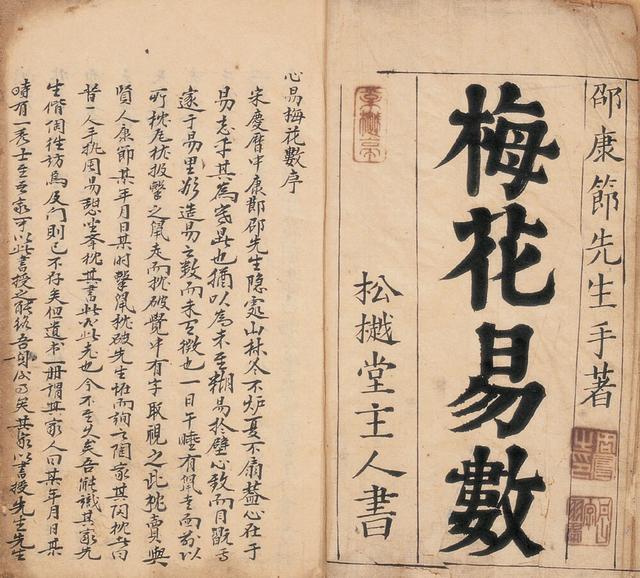 邵康節先生手著
梅花易數
松樾堂主人書
心易梅花數序
宋慶曆中康節邵先生隐處山林冬不炉夏不扇蓋心在于
易忘乎其為寒暑也猶以為未至糊易於壁心致而目翫焉
邃于易里欲造易之数而未有徴也一日午睡有鼠走而前以
所枕瓦枕投擊之鼠走而枕破覺中有字取視之此枕賣與
賢人康節某年月日某時擊鼠枕破先生怪而詢之陶家其陶枕者曰
昔一人手执周易憩坐举枕其書此必此老也今不至久矣吾能識其家先
生偕陶往访焉及门則已不存矣但遺书一册謂其家人曰某年月日某
時有一秀士至吾家可以此書授之能終吾身後事矣其家以書授先生先生